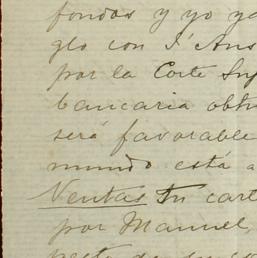 fondos y yo ya
glo con J' Ans
por la Corte Sup
bancaria obtu
será favorable
mundo está a
Ventas Tu cart
por Manuel,